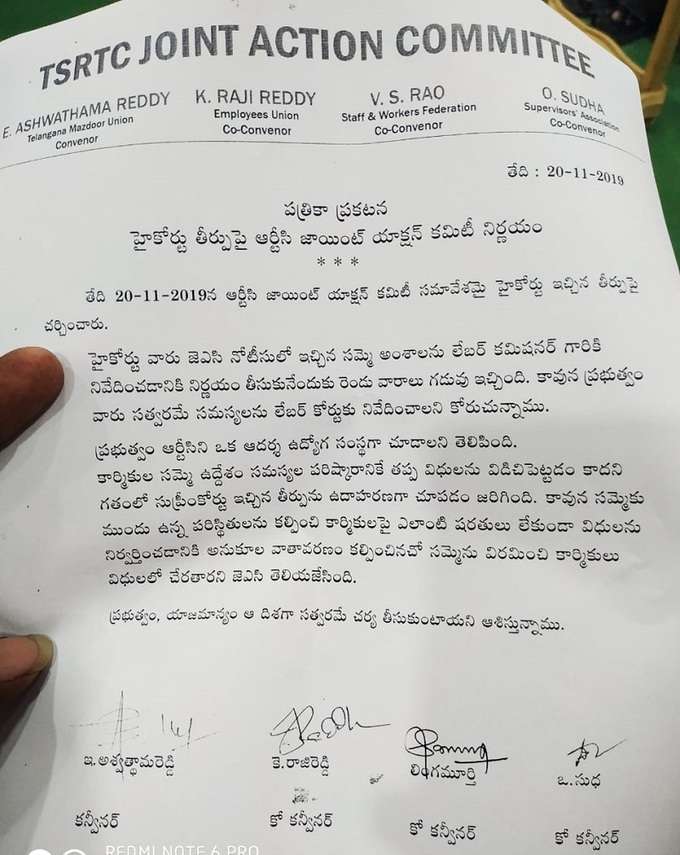 TSRTC JOINT ACTION COMMITTEE
E. ASHWATHAMA REDDY
Telangana Mazdoor Union
Convenor
K. RAJI REDDY
Employees Union
Co-Convenor
V. S. RAO
Staff & Workers Federation
Co-Convenor
O. SUDHA
Supervisors' Association
Co-Convenor
తేది : 20-11-2019
పత్రికా ప్రకటన
హైకోర్టు తీర్పుపై ఆర్టీసి జాయింట్ యాక్షన్ కమిటీ నిర్ణయం
***
తేది 20-11-2019న ఆర్టీసి జాయింట్ యాక్షన్ కమిటీ సమావేశమై హైకోర్టు ఇచ్చిన తీర్పుపై
చర్చించారు.
హైకోర్టు వారు జెఎసి నోటీసులో ఇచ్చిన సమ్మె అంశాలను లేబర్ కమిషనర్ గారికి
నివేదించడానికి నిర్ణయం తీసుకునేందుకు రెండు వారాలు గడువు ఇచ్చింది. కావున ప్రభుత్వం
వారు సత్వరమే సమస్యలను లేబర్ కోర్టుకు నివేదించాలని కోరుచున్నాము.
ప్రభుత్వం ఆర్టీసిని ఒక ఆదర్శ ఉద్యోగ సంస్థగా చూడాలని తెలిపింది.
కార్మికుల సమ్మె ఉద్దేశం సమస్యల పరిష్కారానికే తప్ప విధులను విడిచిపెట్టడం కాదని
గతంలో సుప్రీంకోర్టు ఇచ్చిన తీర్పును ఉదాహరణగా చూపడం జరిగింది. కావున సమ్మెకు
ముందు ఉన్న పరిస్థితులను కల్పించి కార్మికులపై ఎలాంటి షరతులు లేకుండా విధులను
నిర్వర్తించడానికి అనుకూల వాతావరణం కల్పించినచో సమ్మెను విరమించి కార్మికులు
విధులలో చేరతారని జెఎసి తెలియజేసింది.
ప్రభుత్వం, యాజమాన్యం ఆ దిశగా సత్వరమే చర్య తీసుకుంటాయని ఆశిస్తున్నాము.
ఇ.అశ్వత్థామరెడ్డి
కె.రాజిరెడ్డి
లింగమూర్తి
ఒ.సుధ
కన్వీనర్
కో కన్వీనర్
కో కన్వీనర్
కో కన్వీనర్
REDMI NOTE 6 PRO